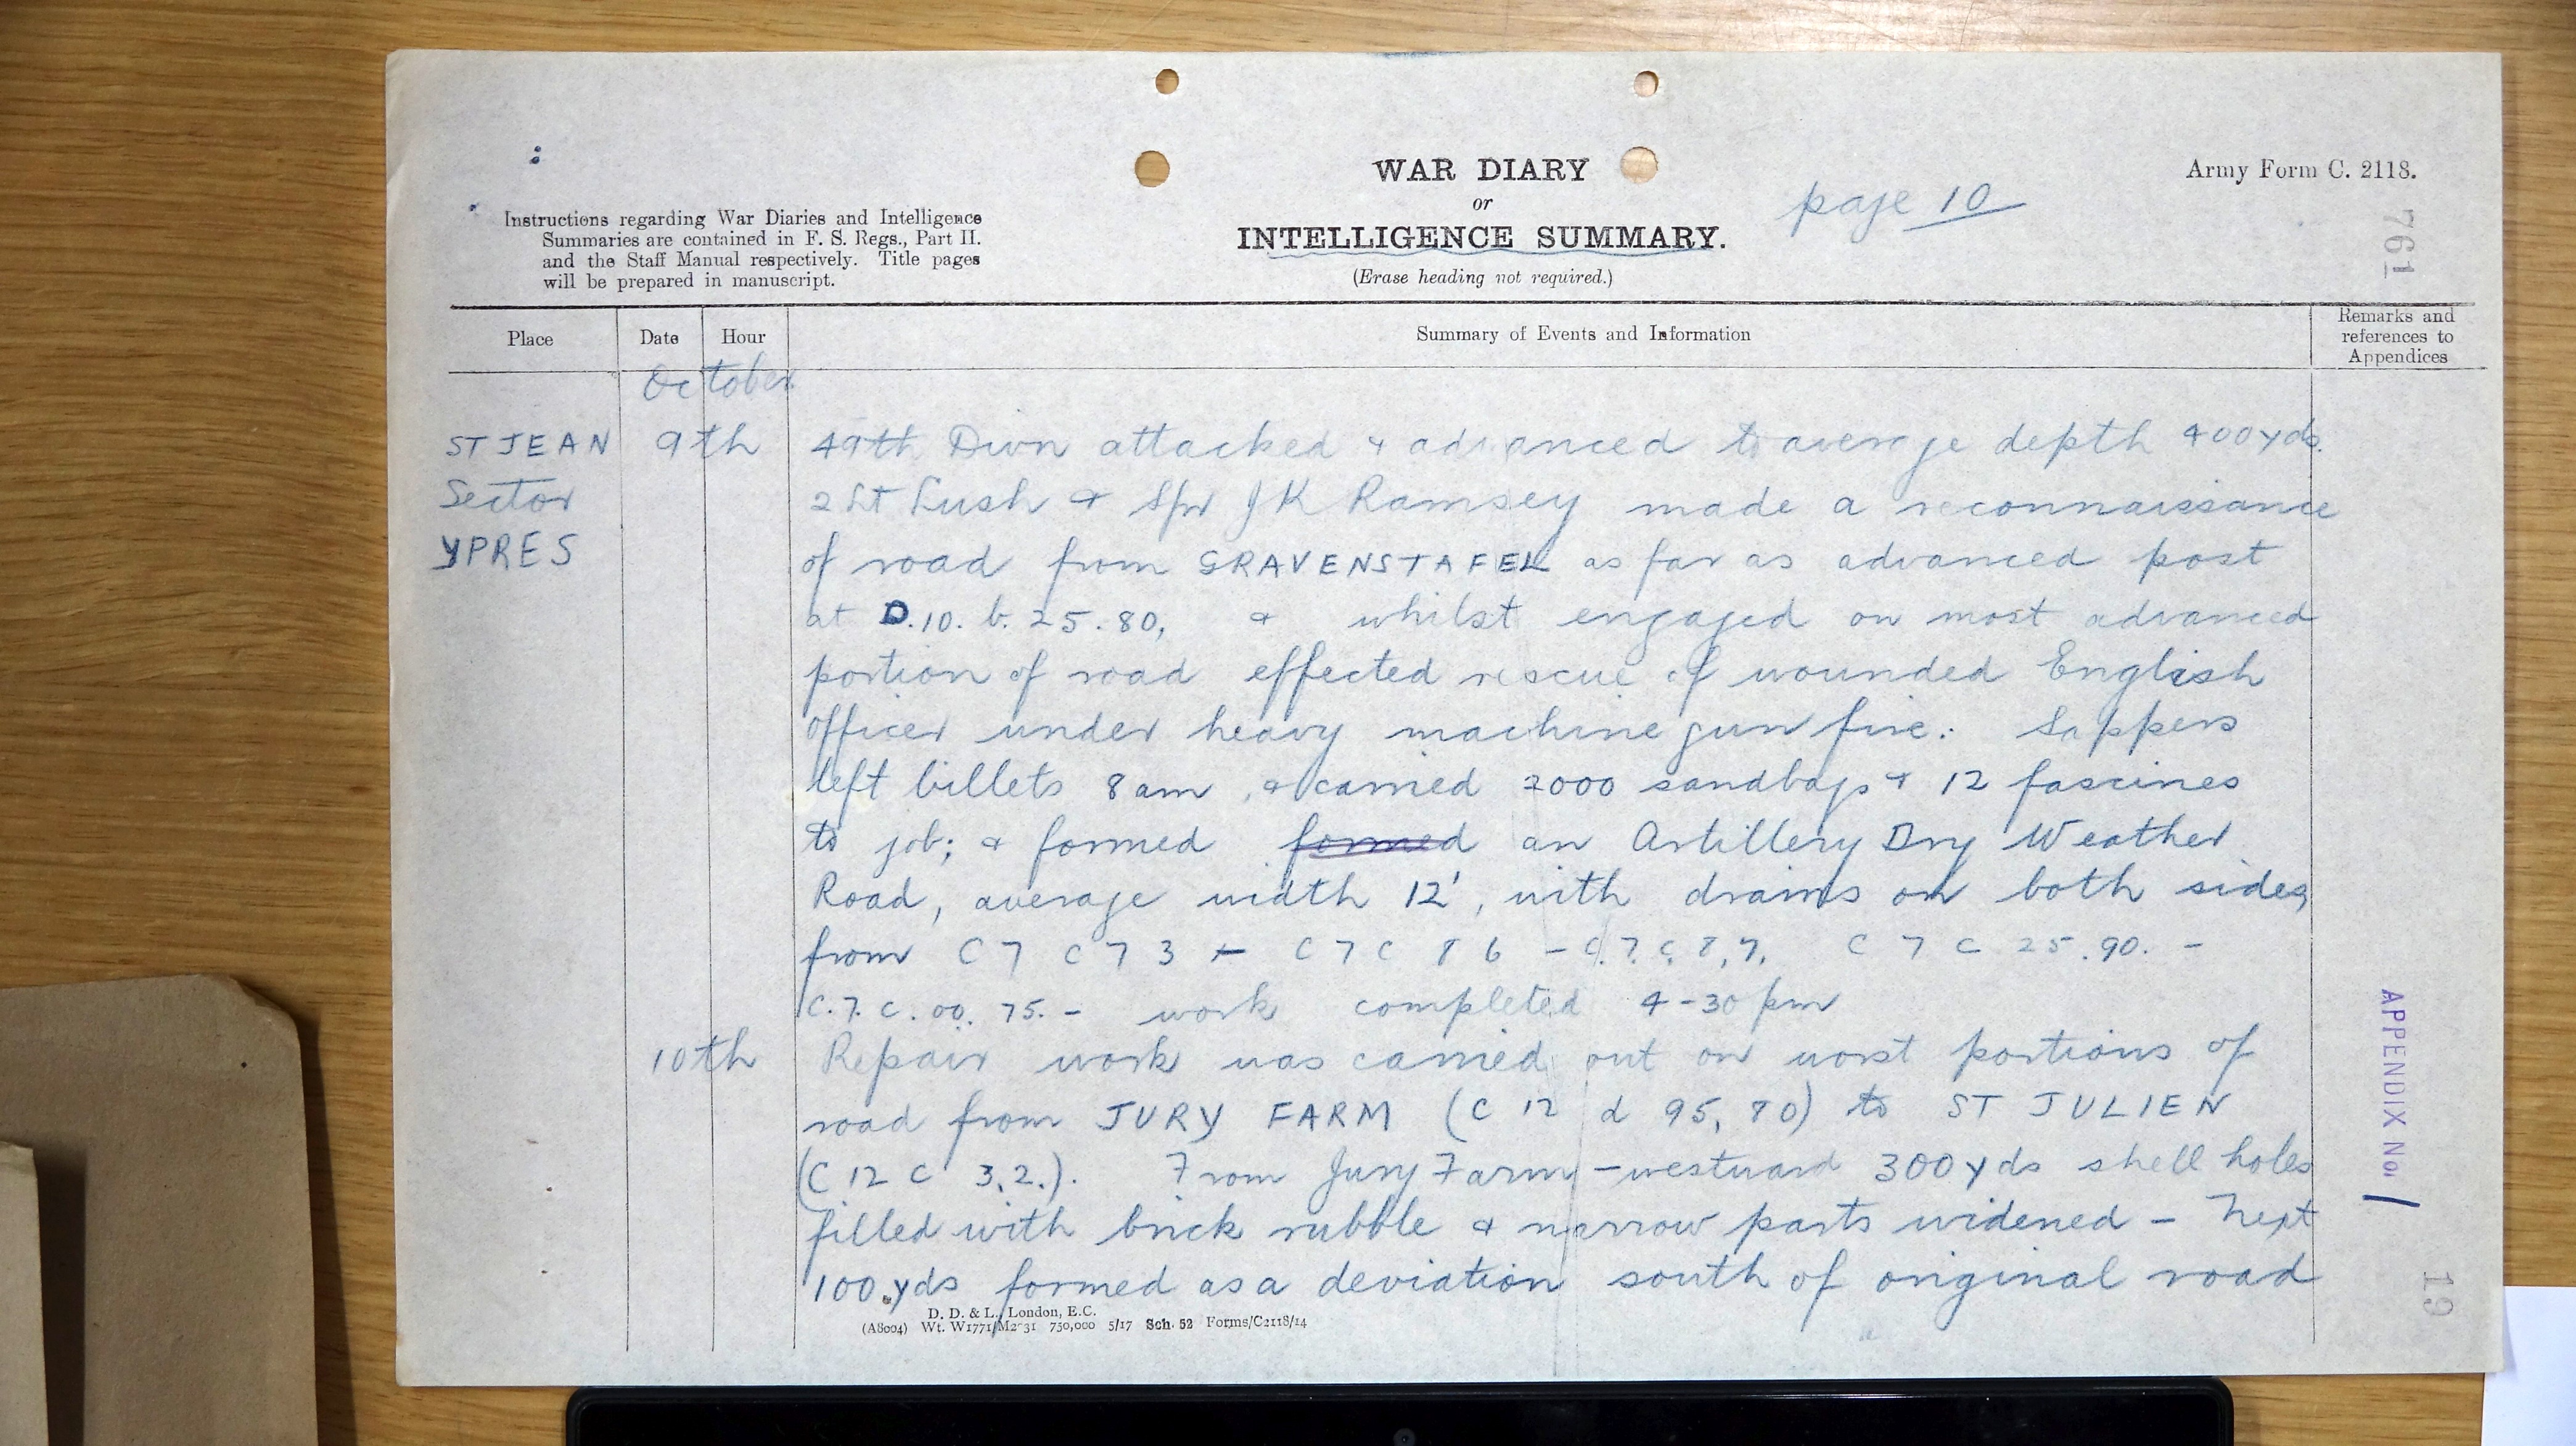 WAR DIARY
or
INTELLIGENCE SUMMARY.
(Erase heading not required.)
page 10
Army Form C. 2118.
761
Instructions regarding War Diaries and Intelligence
Summaries are contained in F. S. Regs., Part II.
and the Staff Manual respectively. Title pages
will be prepared in manuscript.
Place Date Hour Summary of Events and Information Remarks and references to Appendices
October
ST JEAN 9th 49th Divn attacked & advanced to average depth 400yds.
Sector 2Lt Lush & Spr JK Ramsey made a reconnaissance
YPRES of road from GRAVENSTAFEL as far as advanced post
at D.10.b.25.80, & whilst engaged on most advanced
portion of road effected rescue of wounded English
officer under heavy machine gun fire. Sappers
left billets 8am, & carried 2000 sandbags & 12 fascines
to job; & formed formed an Artillery Dry Weather
Road, average width 12', with drains on both sides,
from C 7 C 7 3 - C 7 C 8 6 - C.7.C.8,7, C 7 C 25.90. -
C.7.C.00.75. - work completed 4-30 pm
10th Repair work was carried out on worst portions of
road from JURY FARM (C 12 d 95,80) to ST JULIEN
(C 12 C 3.2.). From Jury Farm - westward 300yds shell holes
filled with brick rubble & narrow parts widened - Next
100.yds formed as a deviation south of original road
APPENDIX No. 1
19
D. D. & L., London, E.C.
(A8004) Wt. W1771/M2031 750,000 5/17 Sch. 52 Forms/C2118/14